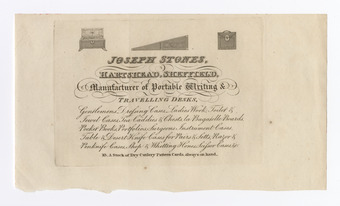 JOSEPH STONES,
HARTSHEAD, SHEFFIELD,
Manufacturer of Portable Writing &
TRAVELLING DESKS,
Gentlemens Dressing Cases, Ladies Work, Toilet &
Jewel Cases, Tea Caddies & Chests, Bagatelle Boards
Pocket Books, Portfolios, Surgeons Instrument Cases
Table & Desert Knife Cases for Pairs & Setts, Razor &
Penknife Cases, Strops & Whetting Hones, Scissor Cases, &c
NB. A Stock of Dry Cutlery Pattern Cards always on hand.